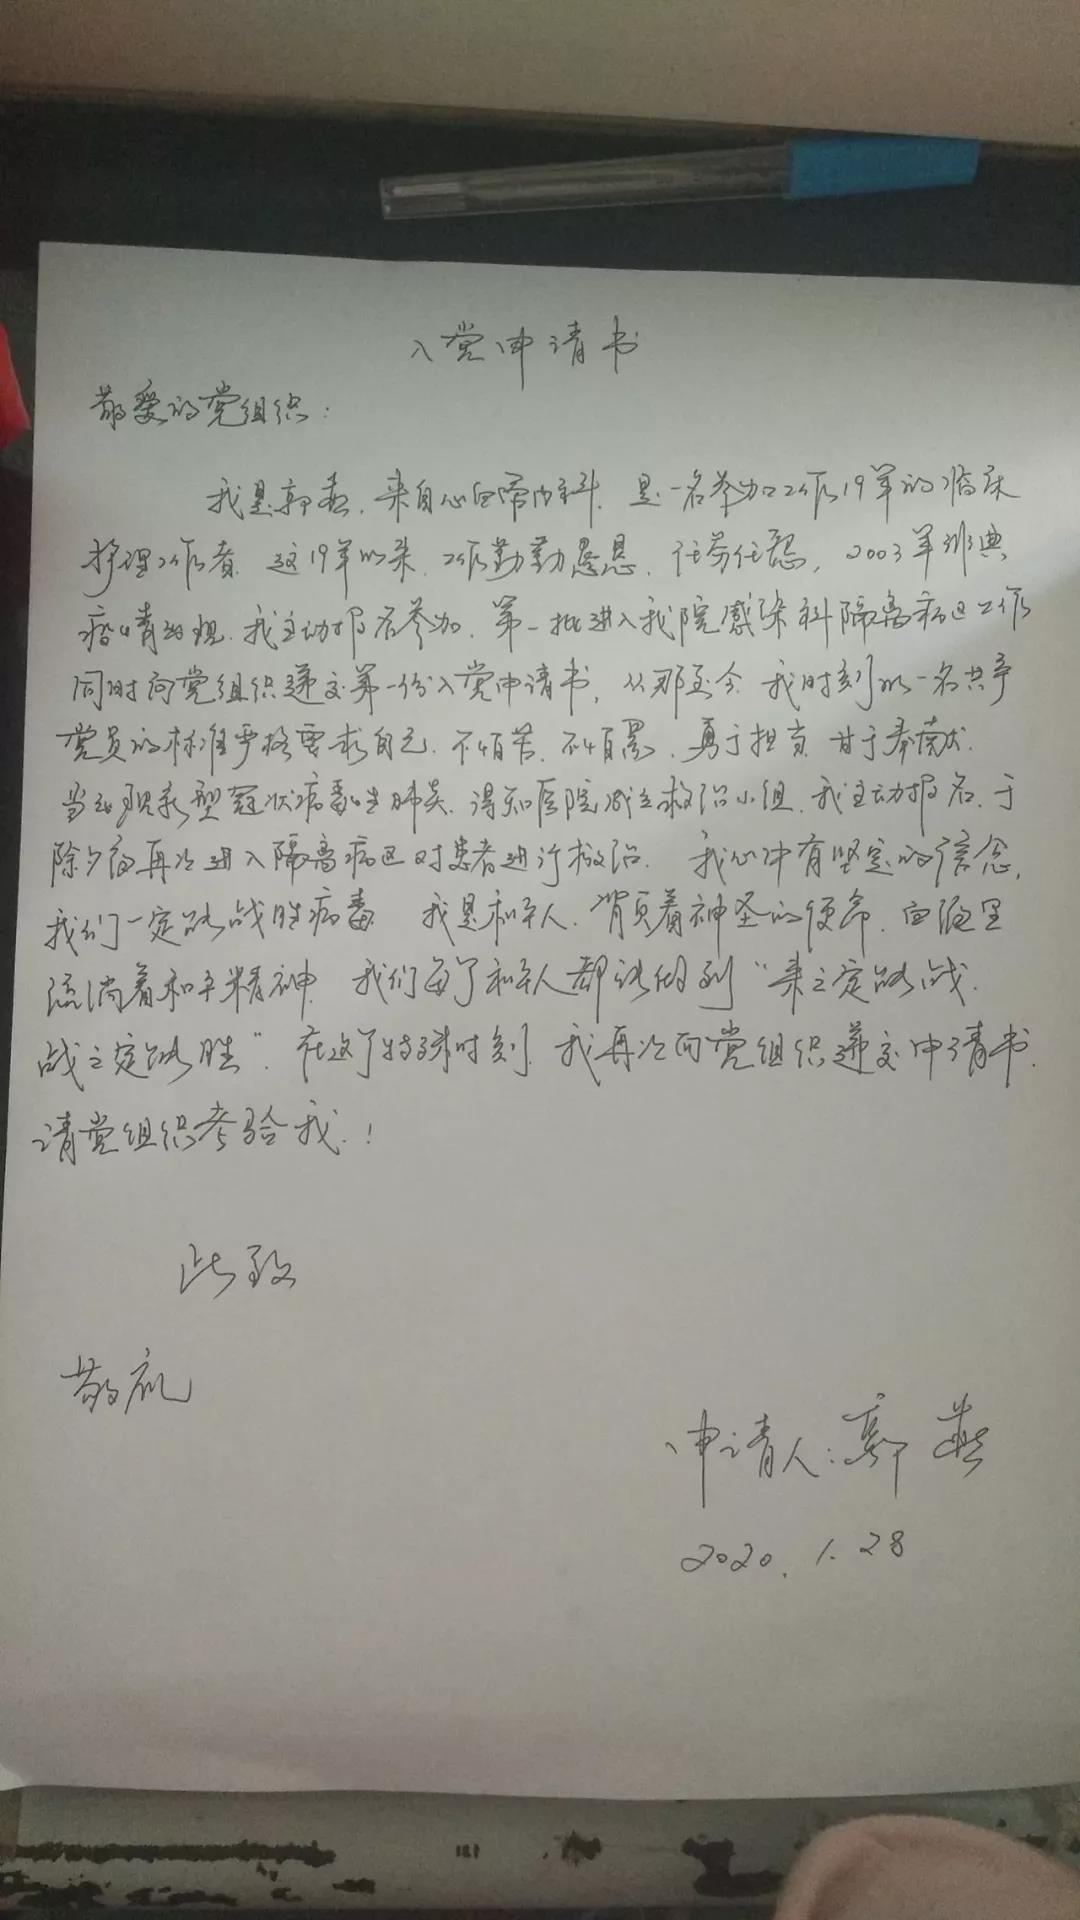 入党申请书
敬爱的党组织:
我是郭燕,来自心血管内科,是一名参加工作19年的临床
护理工作者,这19年以来,工作勤勤恳恳,任劳任怨,2003年非典
疫情出现,我主动报名参加,第一批进入我院感染科隔离病区工作
同时向党组织递交第一份入党申请书,从那至今,我时刻以一名共产
党员的标准严格要求自己,不怕苦,不怕累,勇于担当,甘于奉献.
当出现新型冠状病毒性肺炎,得知医院成立救治小组,我主动报名,于
除夕夜再次进入隔离病区对患者进行救治. 我心中有坚定的信念,
我们一定能战胜病毒 我是和平人,背负着神圣的使命,血液里
流淌着和平精神 我们每个和平人都能做到“来之定能战,
战之定能胜”.在这个特殊时刻,我再次向党组织递交申请书,
请党组织考验我.!
此致
敬礼
申请人:郭燕
2020.1.28